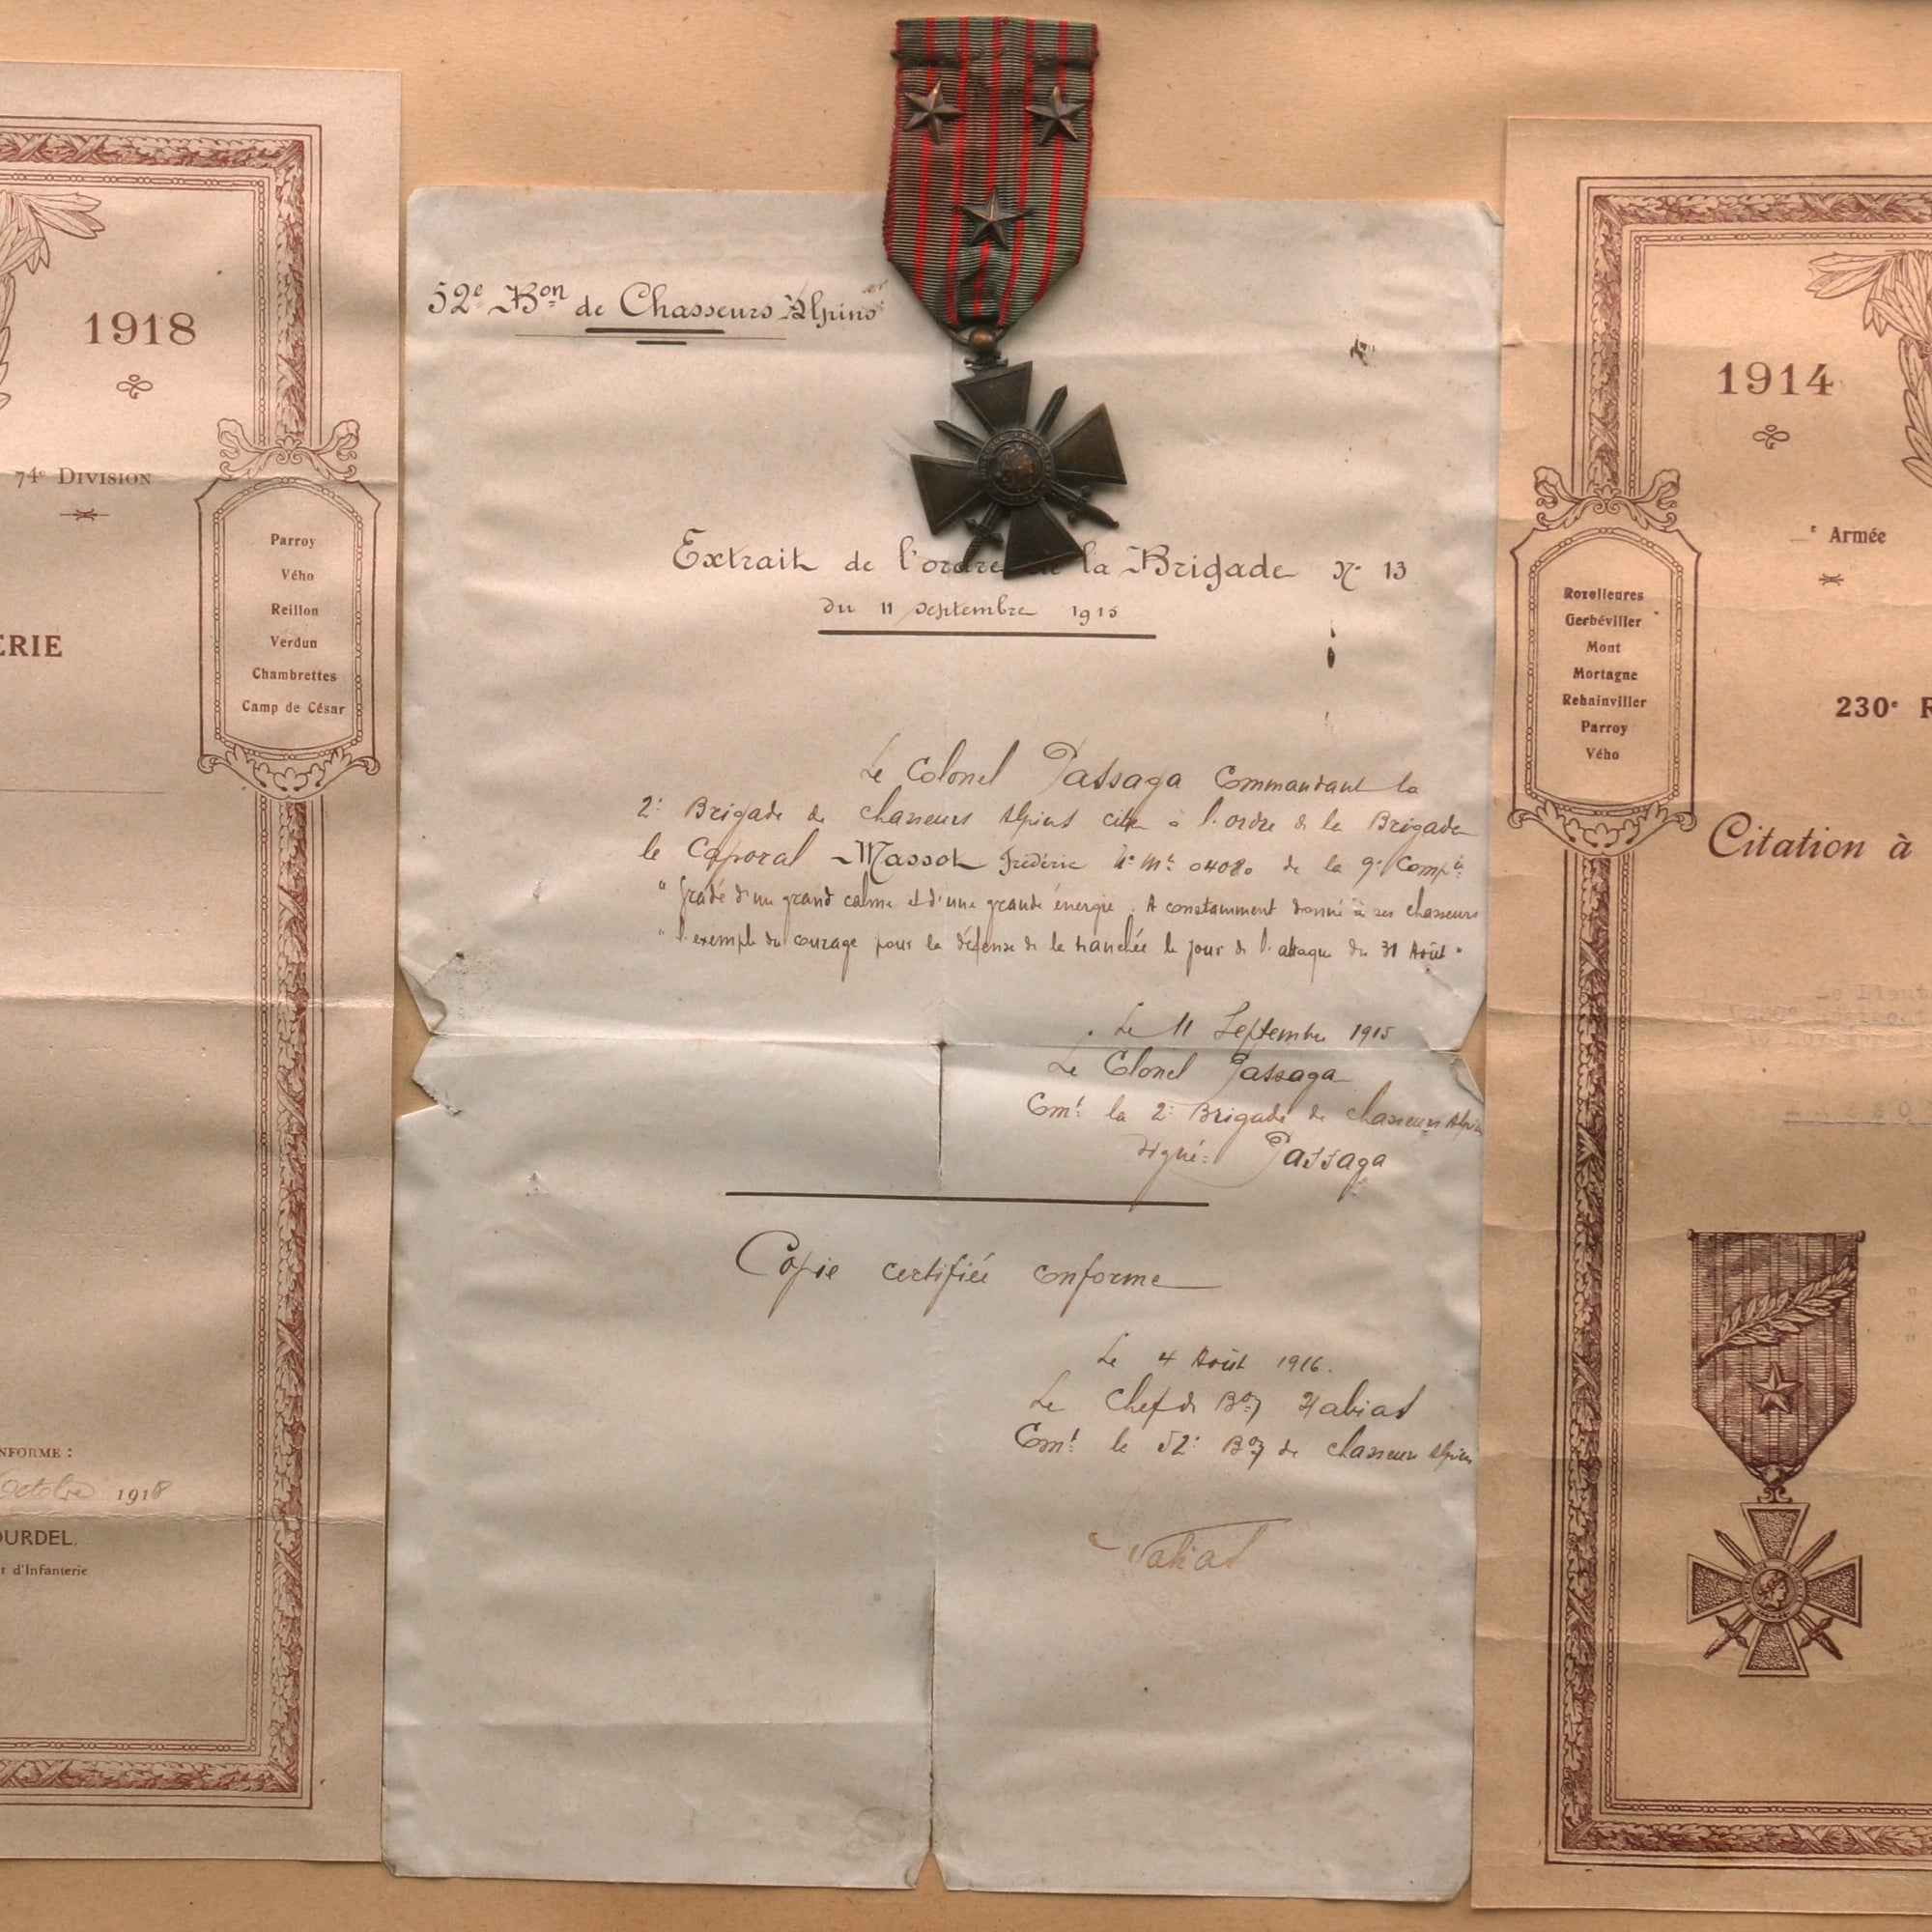 1918
74e DIVISION
Parroy
Vého
Reillon
Verdun
Chambrettes
Camp de César
ERIE
NFORME :
Octobre 1918
OURDEL,
t d'Infanterie
52e Bon de Chasseurs Alpins
Extrait de l'ordre de la Brigade No 13
du 11 Septembre 1915
Le Colonel Passaga Commandant la
2e Brigade de chasseurs Alpins cite à l'ordre de la Brigade
le Caporal Massot Frédéric No Mle 04080 de la 9e Compie
" Gradé d'un grand calme et d'une grande énergie. A constamment donné à ses chasseurs
" l'exemple du courage pour la défense de la tranchée le jour de l'attaque du 31 Août "
Le 11 Septembre 1915
Le Clonel Passaga
Comt la 2e Brigade de chasseurs Alpins
Signé: Passaga
Copie certifiée conforme
Le 4 Août 1916.
Le Chef de Bon
Comt le 52e Bon de chasseurs Alpins
1914
e Armée
Rozelieures
Gerbéviller
Mont
Mortagne
Rehainviller
Parroy
Vého
230e R
Citation à
Le Lieut